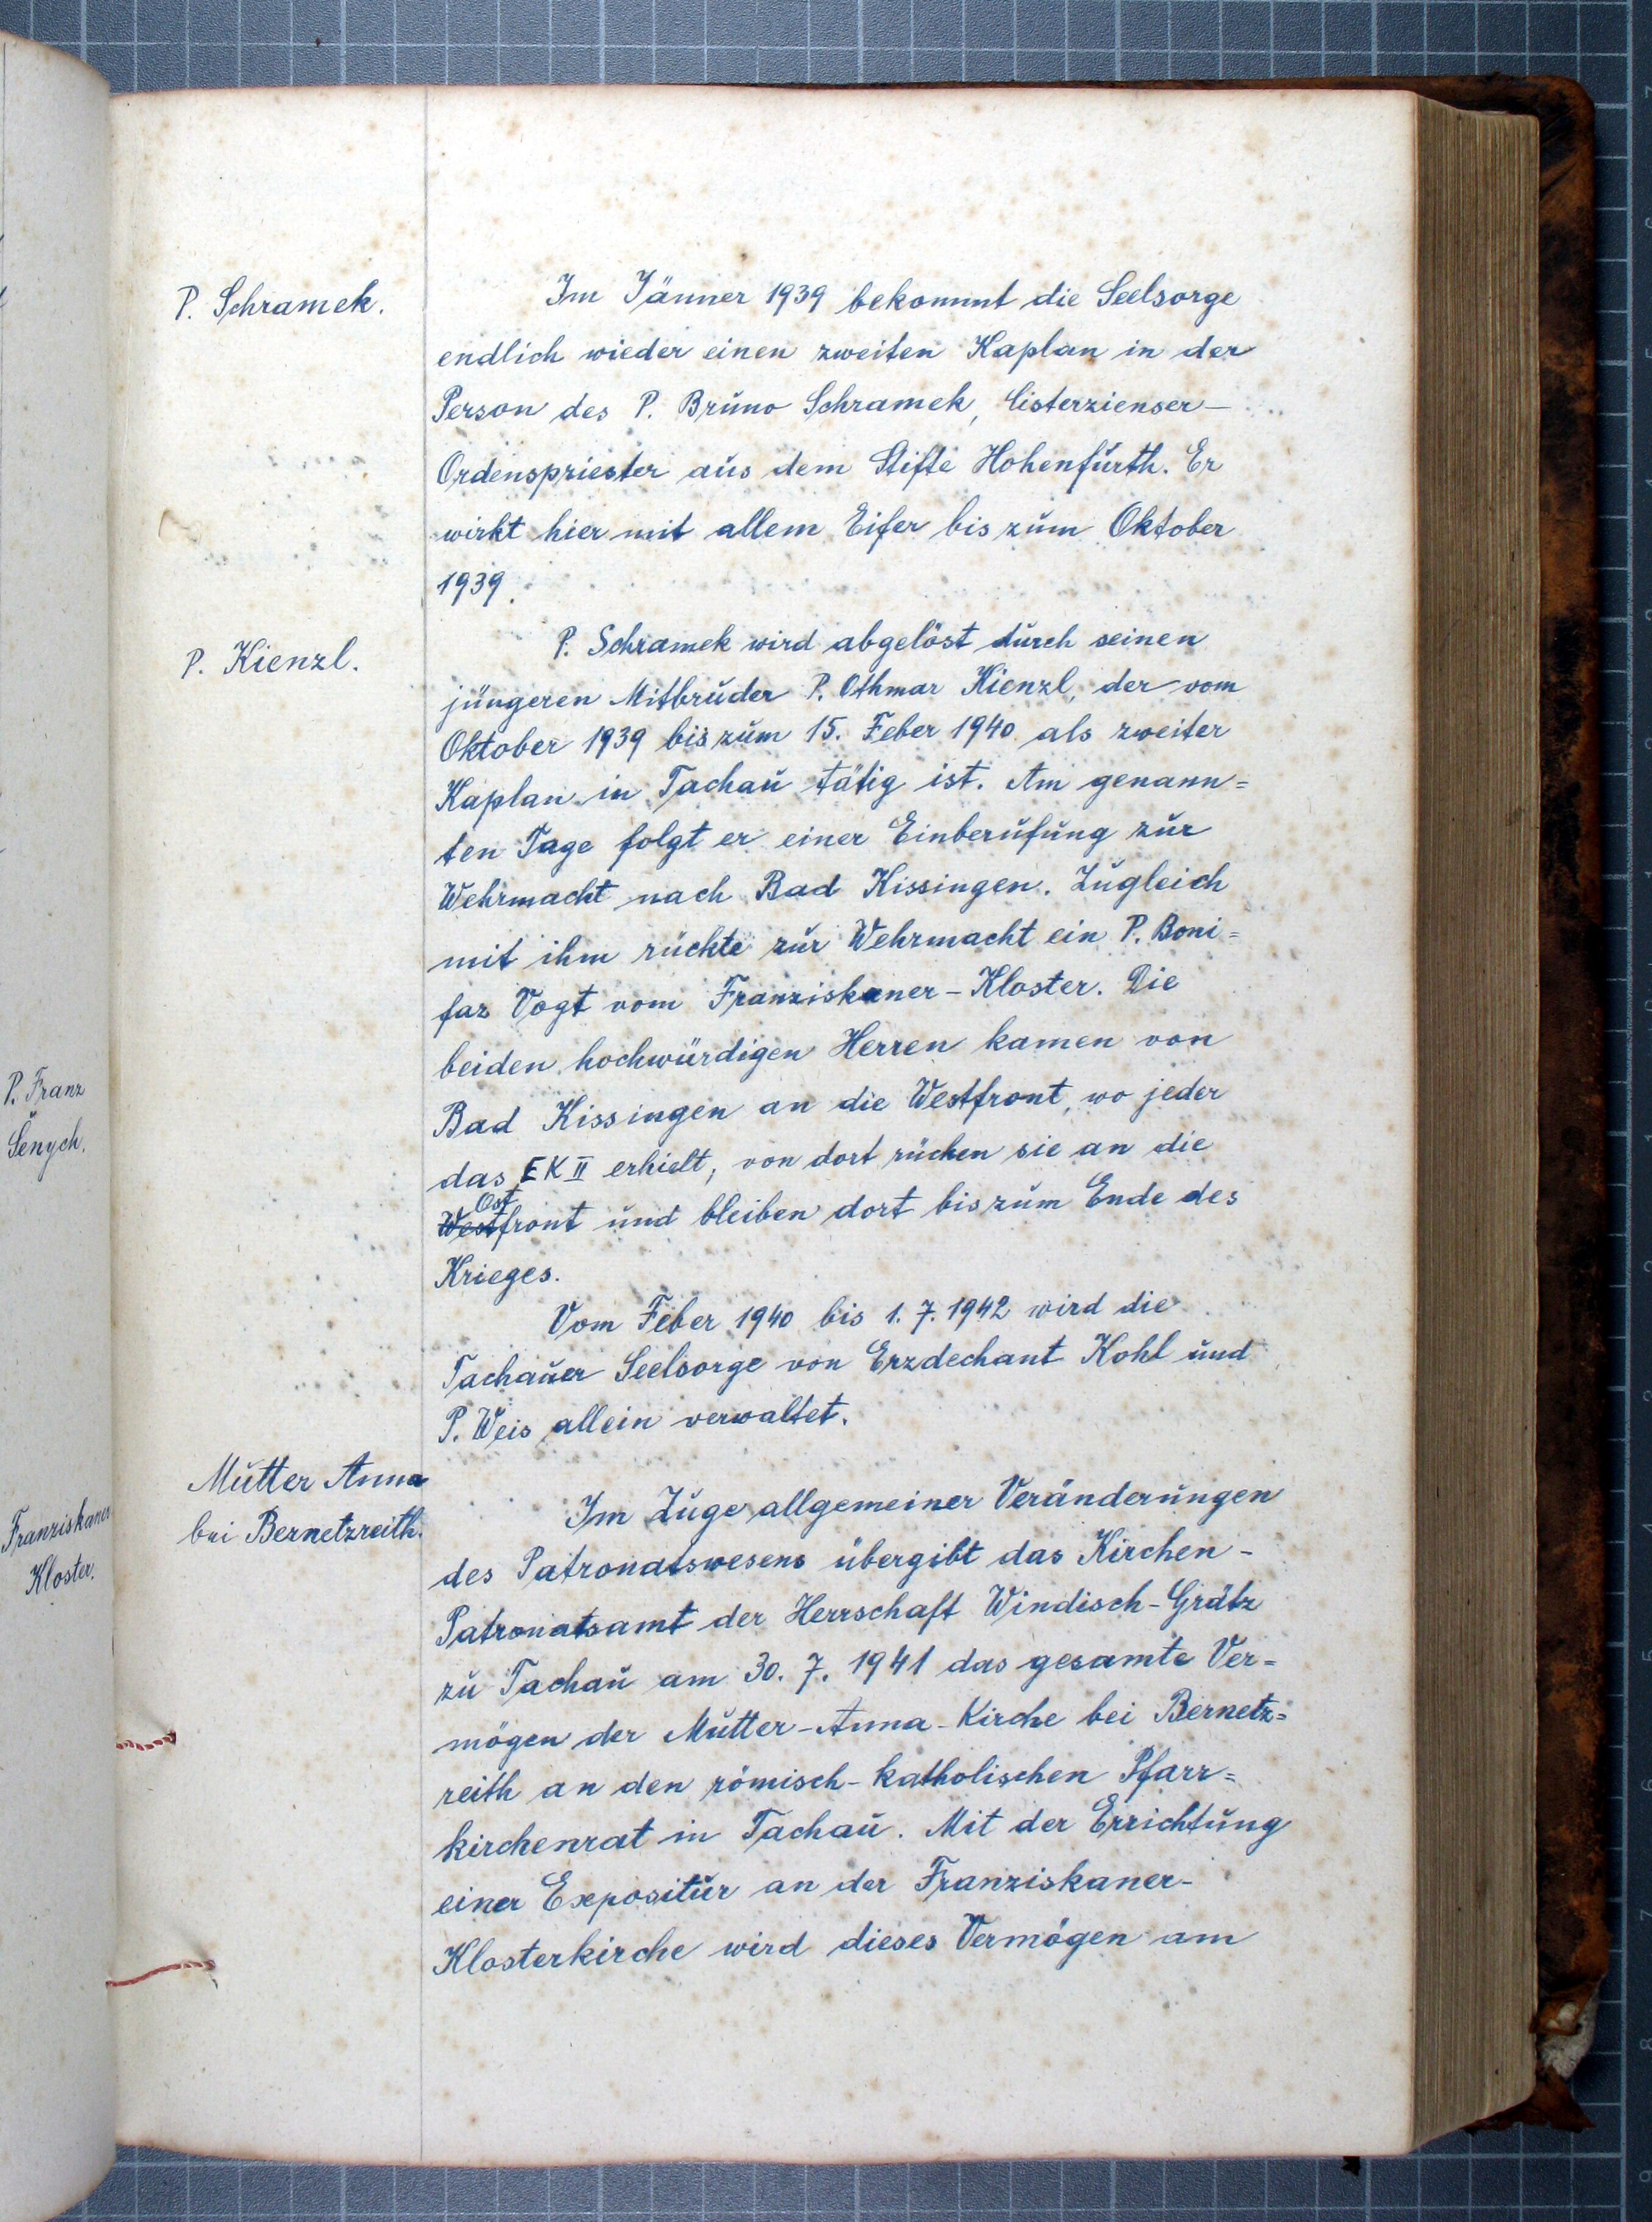 P. Franz
Senych.
Franziskaner
Kloster.
P. Schramek.
Im Jänner 1939 bekommt die Seelsorge
endlich wieder einen zweiten Kaplan in der
Person des P. Bruno Schramek, Cisterzienser-
Ordenspriester aus dem Stifte Hohenfurth. Er
wirkt hier mit allem Eifer bis zum Oktober
1939.
P. Kienzl.
P. Schramek wird abgelöst durch seinen
jüngeren Mitbruder P. Othmar Kienzl, der vom
Oktober 1939 bis zum 15. Feber 1940 als zweiter
Kaplan in Tachau tätig ist. Am genann=
ten Tage folgt er einer Einberufung zur
Wehrmacht nach Bad Kissingen. Zugleich
mit ihm rückte zur Wehrmacht ein P. Boni=
faz Vogt vom Franziskaner-Kloster. Die
beiden hochwürdigen Herren kamen von
Bad Kissingen an die Westfront, wo jeder
das EK II erhielt, von dort rücken sie an die
Ost
Westfront und bleiben dort bis zum Ende des
Krieges.
Vom Feber 1940 bis 1. 7. 1942 wird die
Tachauer Seelsorge von Erzdechant Kohl und
P. Weis allein verwaltet.
Mutter Anna
bei Bernetzreith.
Im Zuge allgemeiner Veränderungen
des Patronatswesens übergibt das Kirchen-
Patronatsamt der Herrschaft Windisch-Grätz
zu Tachau am 30. 7. 1941 das gesamte Ver=
mögen der Mutter-Anna-Kirche bei Bernetz=
reith an den römisch-katholischen Pfarr=
kirchenrat in Tachau. Mit der Errichtung
einer Expositur an der Franziskaner-
Klosterkirche wird dieses Vermögen am